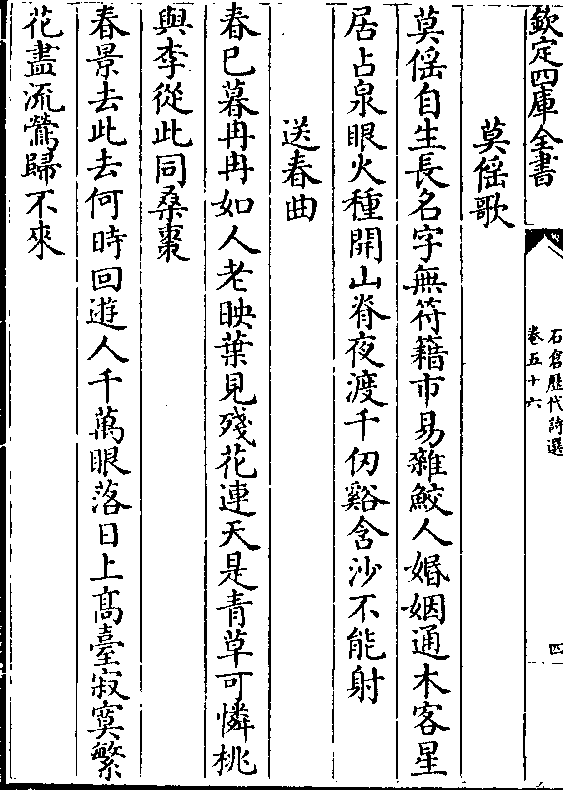 欽定四庫全書
石倉歷代詩選
卷五十六
四
莫傜歌
莫傜自生長名字無符籍市易雜鮫人婚姻通木客星
居占泉眼火種開山脊夜渡千仞谿含沙不能射
送春曲
春已暮冉冉如人老映葉見殘花連天是青草可憐桃
與李從此同桑棗
春景去此去何時回遊人千萬眼落日上髙臺寂寞繁
花盡流鶯歸不來